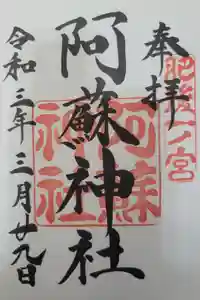 奉拝
肥後一ノ宮
阿蘇神社
阿蘇
神社
令和三年三月廿九日